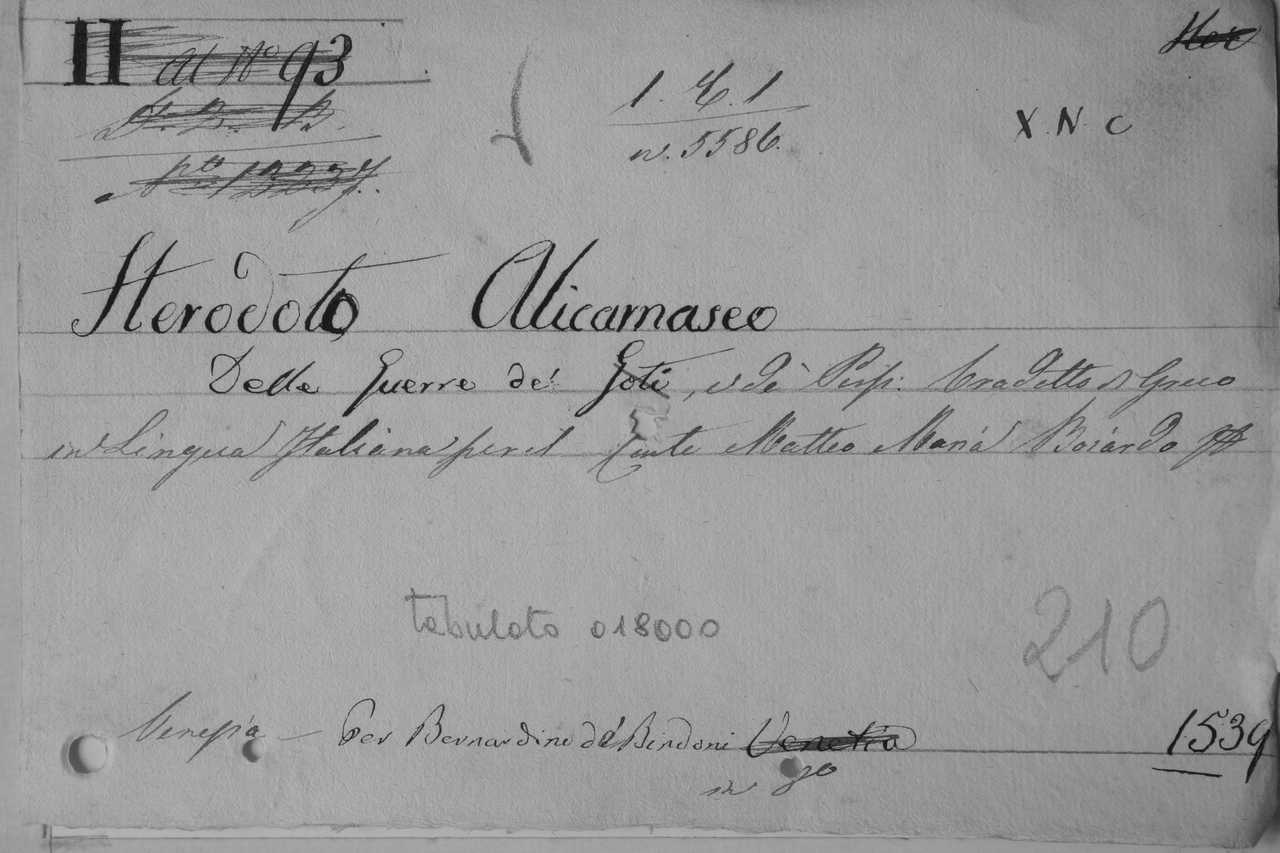 II al N° 93
Her
D. B. B.
1. E. 1
n. 5586.
X. N. C
Herodoto Alicarnaseo
Delle Guerre de' Goti, e de' Persi. tradotto di Greco
in Lingua Italiana per il Conte Matteo Maria Boiardo
tabulato 018000
210
Venezia — Per Bernardino de' Bindoni Venetia 1539
in 8°